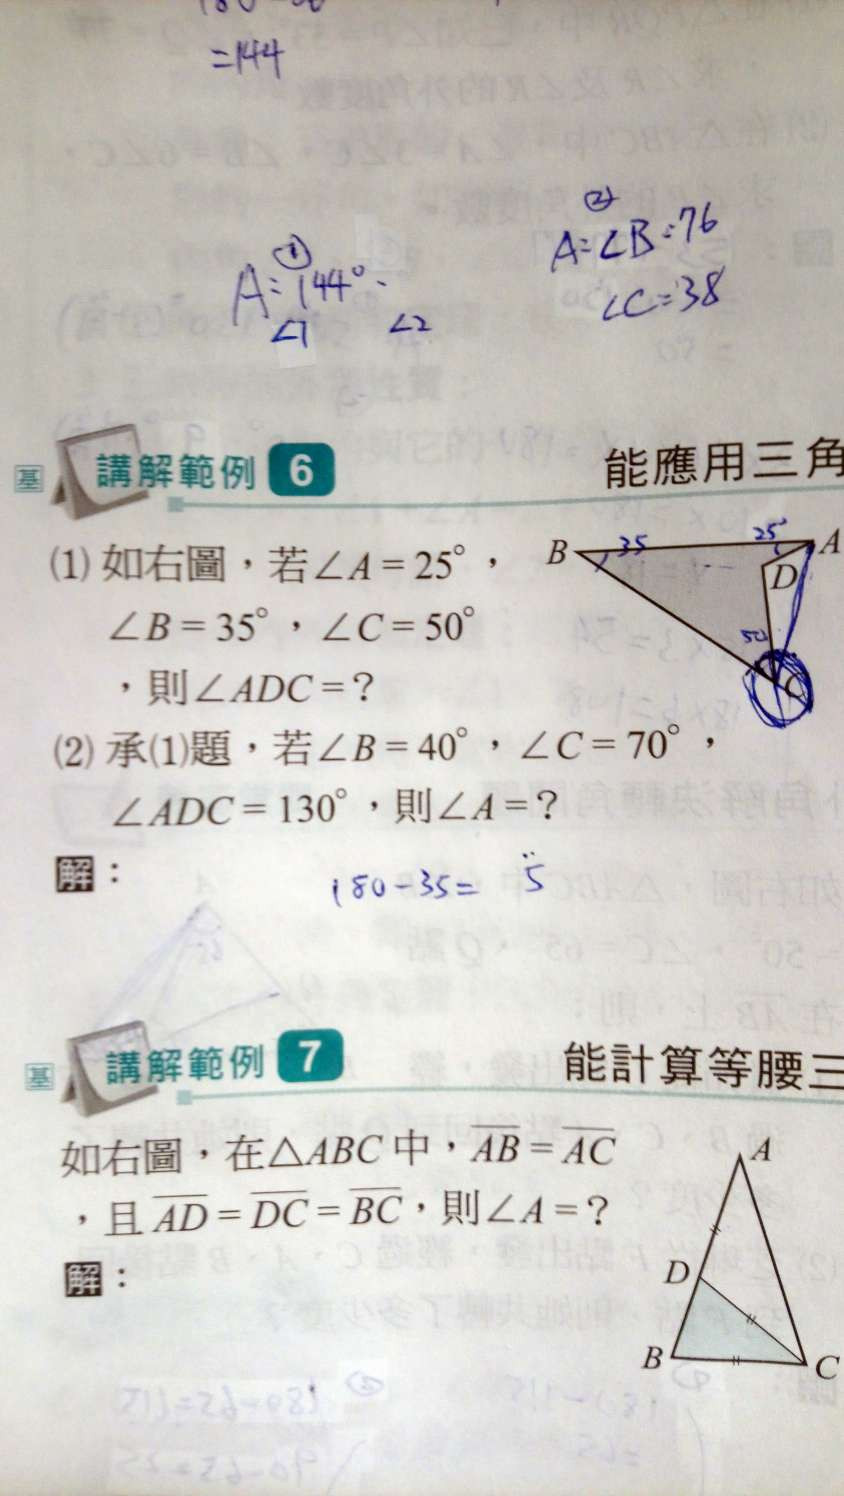 =144
①
A=144°
∠1 ∠2
②
A=∠B=76
∠C=38
基 講解範例 6 能應用三角
(1) 如右圖，若∠A=25°，
∠B=35°，∠C=50°
，則∠ADC=？
B 35 25° A
D
50
C
(2) 承(1)題，若∠B=40°，∠C=70°，
∠ADC=130°，則∠A=？
解：
180-35= 5
基 講解範例 7 能計算等腰三
如右圖，在△ABC中，AB=AC
，且AD=DC=BC，則∠A=？
解：
A
D
B C